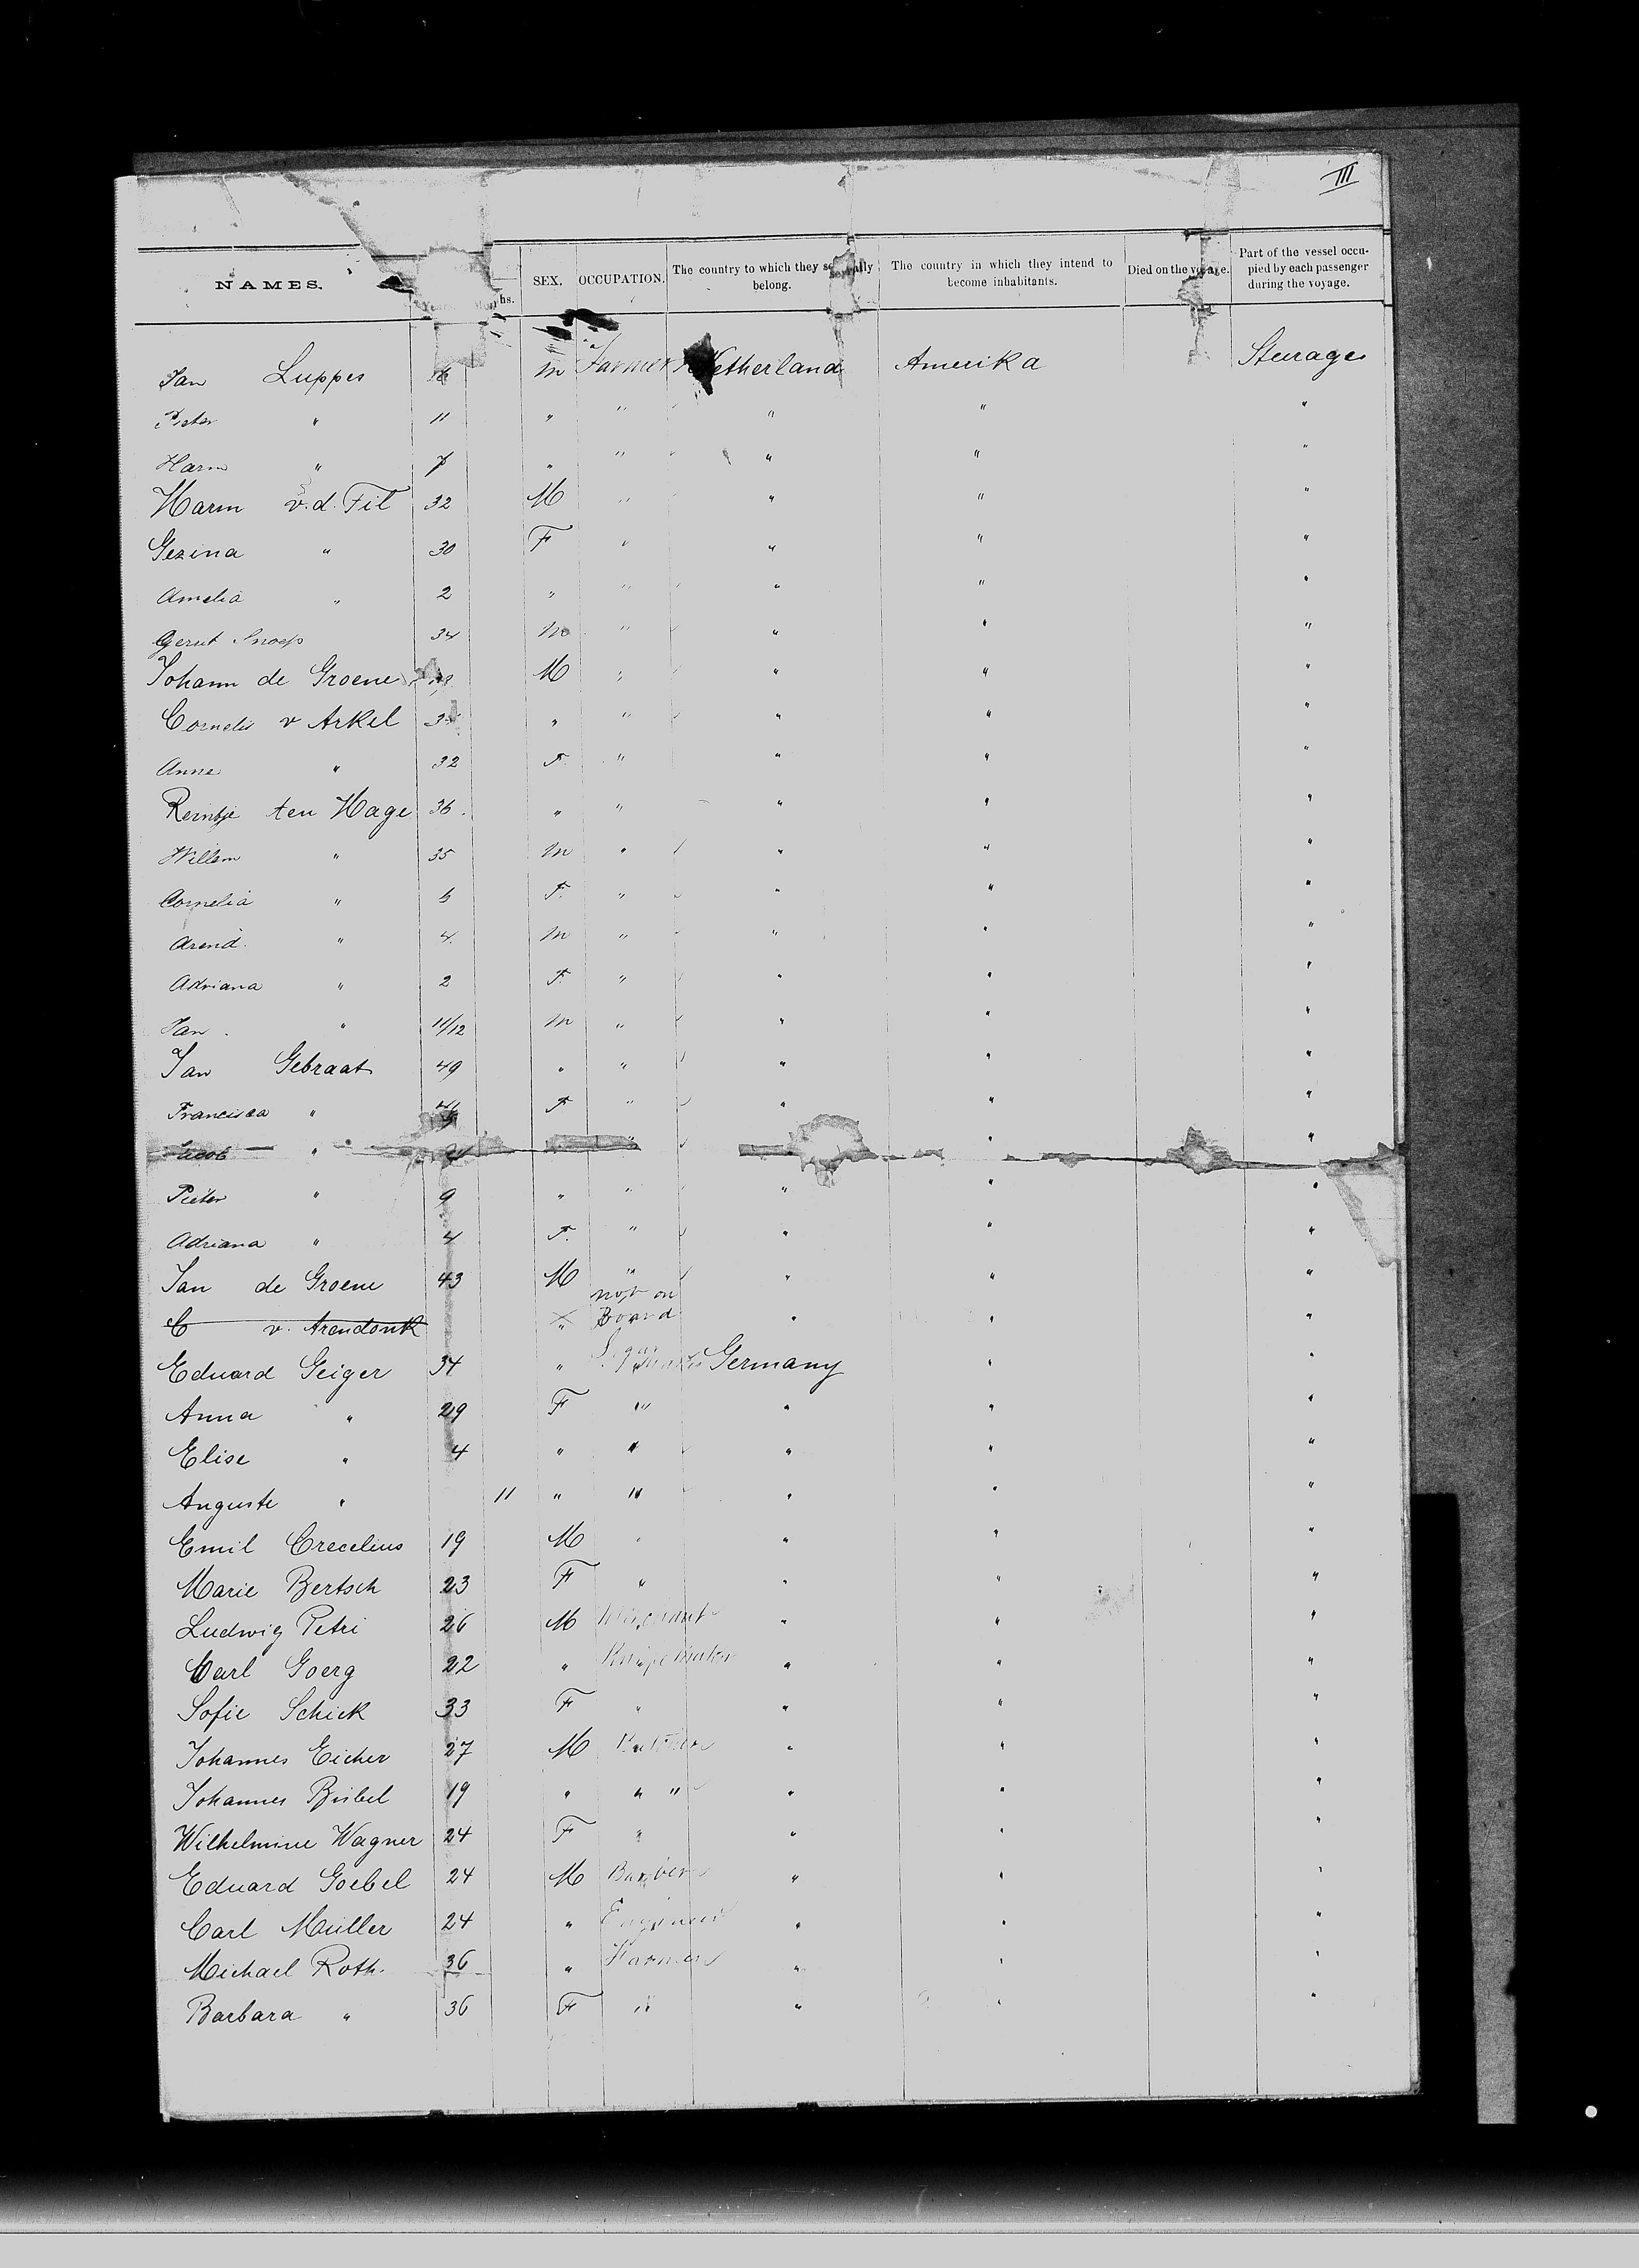 III
NAMES. Years Months. SEX. OCCUPATION. The country to which they severally belong. The country in which they intend to become inhabitants. Died on the voyage. Part of the vessel occupied by each passenger during the voyage.
Jan Luppes m Farmer Netherland Amerika Steerage
Pieter " 11 " " " " "
Harm " 7 " " " " "
Harm v.d. Til 32 M " " " "
Gezina " 30 F " " " "
Amelia " 2 " " " " "
Gerrit Snoep 34 m " " " "
Johann de Groene M " " " "
Cornelis v Arkel " " " " "
Anne " 32 F. " " " "
Reintje ten Hage 36. " " " " "
Willem " 35 m " " " "
Cornelia " F. " " " "
Arend. " 4. m " " " "
Adriana " 2 F. " " " "
Jan. " 11/12 m " " " "
Jan Gebraat 49 " " " " "
Francisca " F " " " "
Jacob " " " "
Pieter " 9 " " " " "
Adriana " 4 F. " " " "
Jan de Groene 43 M " " " "
C v. Arendonk " not on Board " " "
Eduard Geiger 34 " Germany " "
Anna " 29 F " " " "
Elise " 4 " " " " "
Auguste " 11 " " " " "
Emil Crecelius 19 M " " " "
Marie Bertsch 23 F " " " "
Ludwig Petri 26 M Merchant " " "
Carl Goerg 22 " " " "
Sofie Schick 33 F " " " "
Johannes Eicher 27 M Butcher " " "
Johannes 19 " " " " " "
Wilhelmine Wagner 24 F " " " "
Eduard Goebel 24 M Barber " " "
Carl Müller 24 " Engineer " " "
Michael Roth. 36 " Farmer " " "
Barbara " 36 F " " " "